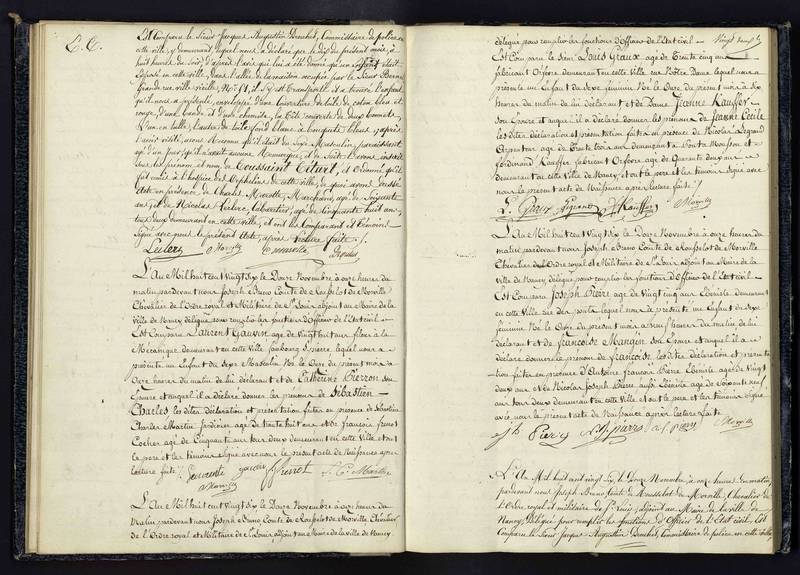 C. C.
Est Comparu le Sieur Jacques Augustin Brechet, Commissaire de police en
cette ville, y demeurant, lequel nous a déclaré que le dix du présent mois, à
huit heures du soir, d'après l'avis qui lui a été donné qu'un Enfant était
Exposé en cette ville, Dans l'allée de la maison occupée par le Sieur
Grande rue ville vieille, No. 81, il s'y est transporté, il a trouvé l'enfant
qu'il nous a présenté, enveloppé d'une Couverture de toile de coton bleu et
rouge, d'une bande et d'une chemise, la tête couverte de deux bonnets
L'un en tulle, l'autre de toile fond blanc à bouquets bleus, après
l'avoir visité, avons Reconnu qu'il était du Sexe Masculin, paraissant
âgé d'un jour, qu'il n'avait aucune Remarque, et de suite l'avons inscrit
sous les prénom et nom de Toussaint Etart, et ordonné qu'il
fut remis à l'hospice des Orphelins de cette ville, de quoi avons dressé
Acte en présence de Charles Marotte, Marchand, âgé de Soixante
ans, et de Nicolas Leclerc, Cabaretier, âgé de Cinquante huit ans,
tous deux demeurant en cette ville, et ont les Comparant et Témoins
Signé avec nous le présent Acte, après lecture faite ./.
Leclerc Morville
L'An Mil huit cent vingt Six le Douze Novembre à onze heures du
matin pardevant nous Joseph Bruno Comte de Rousselot de Morville
Chevalier de l'Ordre royal et Militaire de St Louis adjoint au Maire de la
Ville de Nancy délégué pour remplir les fonctions d'Officier de l'Etat civil —
Est Comparu Laurent Gauvin âgé de Vingt huit ans fileur à la
Mécanique demeurant en cette Ville faubourg St pierre, lequel nous a
présenté un Enfant du Sexe Masculin Né le Onze du présent mois à
Onze heures du matin de lui déclarant et de Catherine Pierron son
Epouse et auquel il a déclaré donner les prénoms de Sébastien
Charles les dites déclaration et présentation faites en présence de Sébastien
Charles Martin Jardinier âgé de trente huit ans et de françois frenot
Cocher âgé de Cinquante ans tous deux demeurant en cette Ville et ont
le père et les témoins signé avec nous le présent acte de Naissance après
lecture faite ./. Laurent gauvin f frenot S. C. Martin
Morville
L'An Mil huit cent Vingt Six le Douze Novembre à onze heures du
Matin pardevant nous Joseph Bruno Comte de Rousselot de Morville Chevalier
de l'Ordre royal et Militaire de St Louis, adjoint au Maire de la ville de Nancy
délégué pour remplir les fonctions d'Officier de l'Etat civil —
Est Comparu le Sieur Louis Graux âgé de Trente cinq ans
fabricant Orfèvre demeurant en cette Ville rue Notre Dame lequel nous a
présenté un Enfant du Sexe féminin Né le Onze du présent mois à Six
heures du matin de lui déclarant et de Dame Jeanne Kauffer
Son Epouse et auquel il a déclaré donner les prénoms de Jeanne Cécile
les dites déclaration et présentation faites en présence de Nicolas Legrand
Arpenteur âgé de Trente trois ans demeurant à Pont à Mousson et
Ferdinand Kauffer fabricant Orfèvre âgé de Quarante deux ans
demeurant en cette Ville de Nancy, et ont le père et les témoins signé avec
nous le présent acte de Naissance après lecture faite ./.
L. Graux Legrand F Kauffer Morville
L'An Mil huit cent Vingt Six le Douze Novembre à onze heures du
matin pardevant nous Joseph Bruno Comte de Rousselot de Morville
Chevalier de l'Ordre royal et Militaire de St Louis adjoint au Maire de la
Ville de Nancy délégué pour remplir les fonctions d'Officier de l'Etat civil —
Est Comparu Joseph Pierre âgé de Vingt cinq ans Ebéniste demeurant
en cette Ville rue lequel nous a présenté un Enfant du Sexe
féminin Né le Onze du présent mois à neuf heures du matin de lui
déclarant et de françoise Mangin Son Epouse et auquel il a
déclaré donner le prénom de françoise les dites déclaration et présenta-
tion faites en présence d'Antoine françois Pierre Ebéniste âgé de Vingt
deux ans et de Nicolas Joseph Pierre aussi Ebéniste âgé de soixante
ans tous deux demeurant en cette Ville et ont le père et les témoins signé
avec nous le présent acte de Naissance après lecture faite
Morville
L'An Mil huit cent vingt six, le Douze Novembre, à onze heures du matin,
pardevant nous Joseph Bruno Comte de Rousselot de Morville, Chevalier de
l'Ordre royal et militaire de St Louis, adjoint au Maire de la ville de
Nancy, Délégué pour remplir les fonctions d'Officier de l'Etat civil, Est
Comparu le Sieur Jacques Augustin Brechet, Commissaire de police en cette Ville,